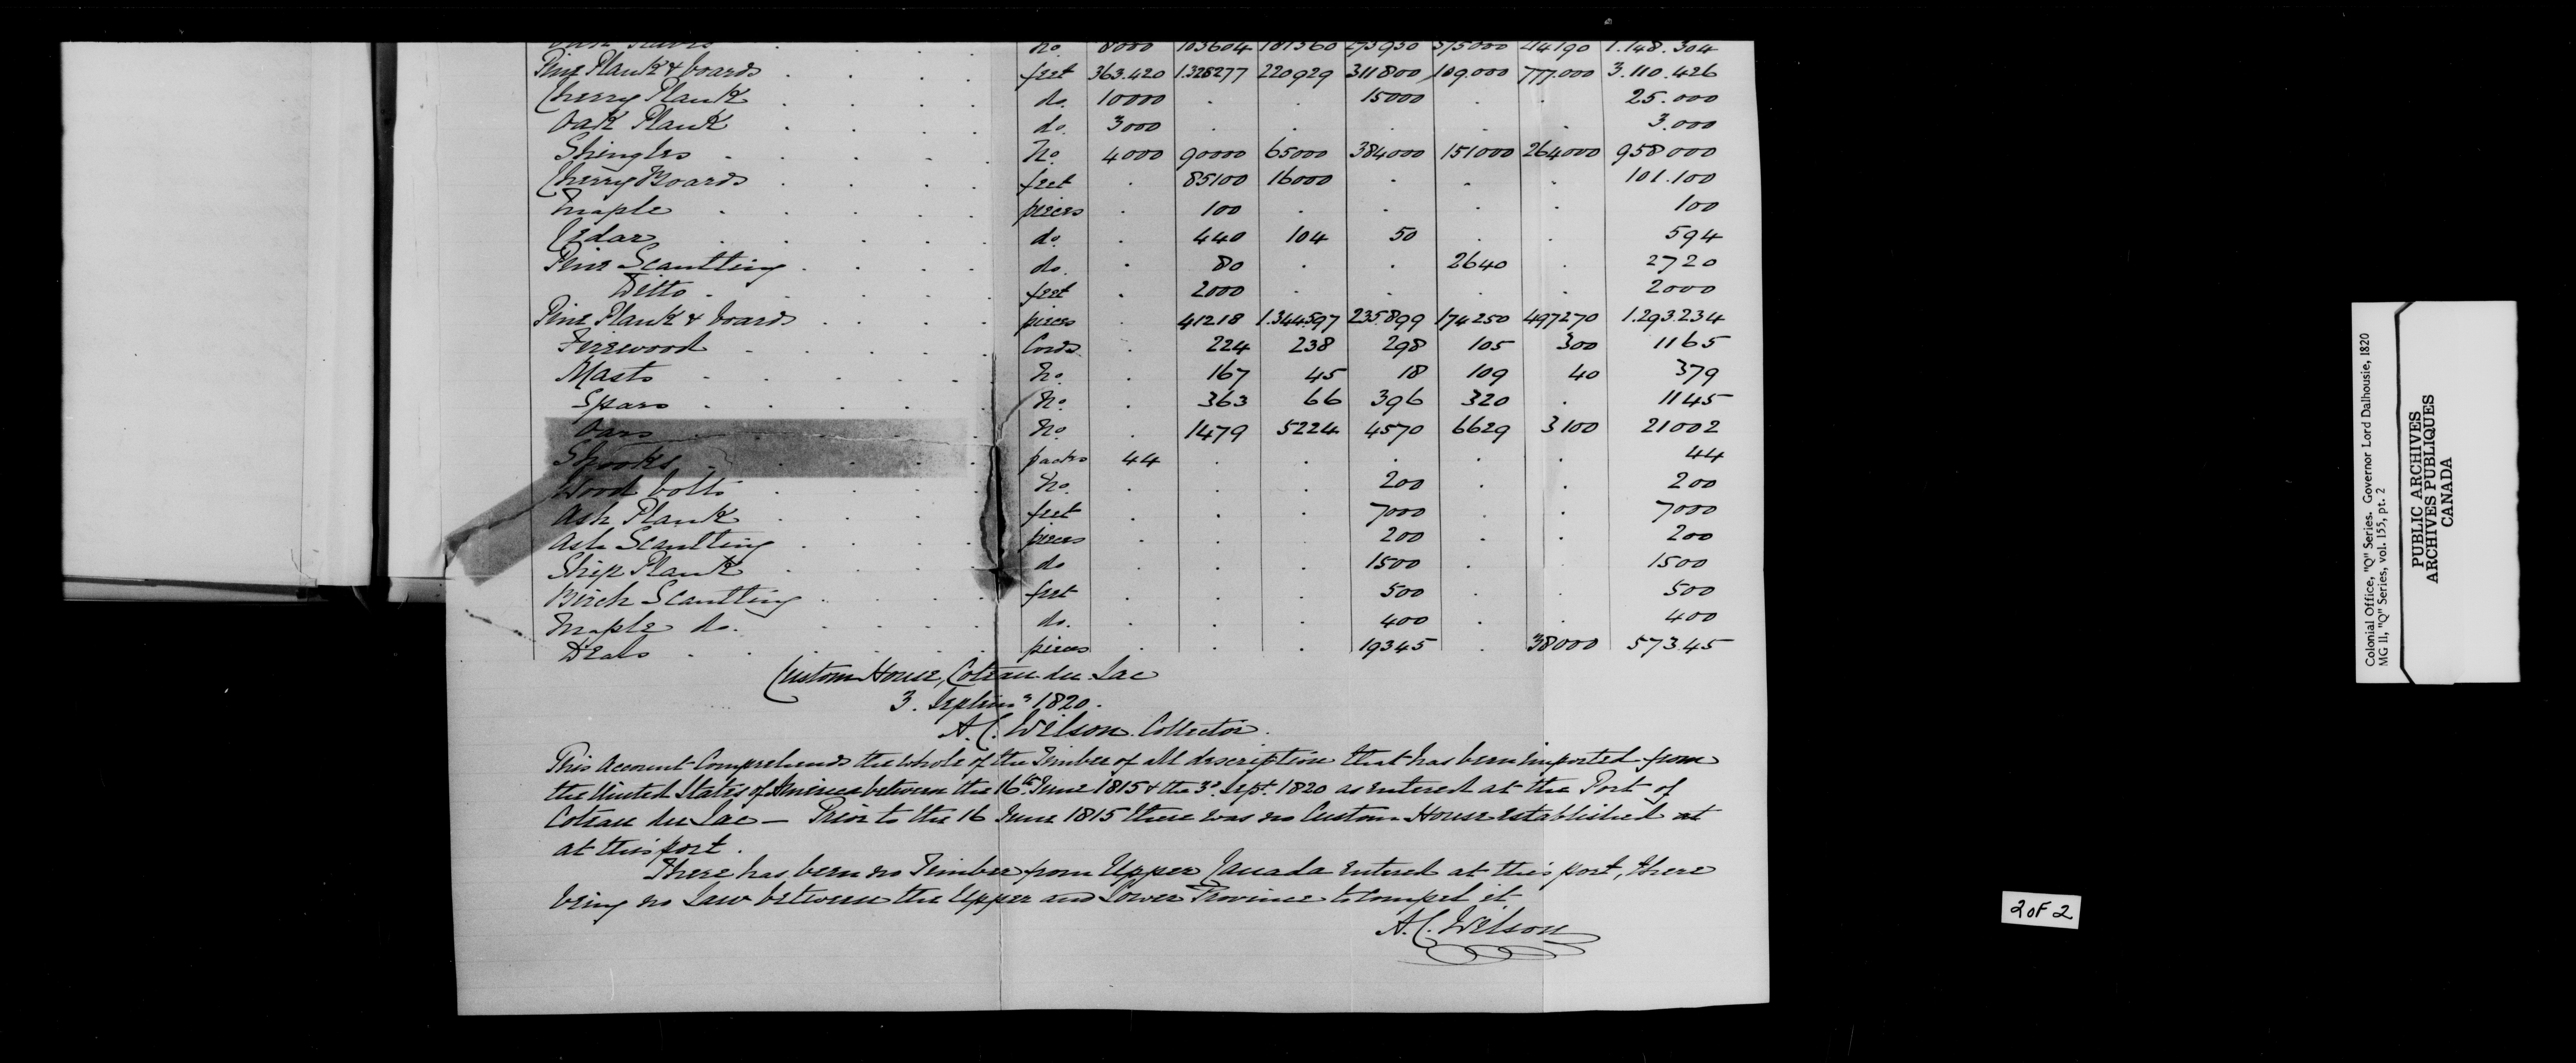 No 8000 103604 187560 275950 375000 214190 1.148.304
Pine Plank & boards . . . . feet 363.420 1.328277 220929 311800 109.000 777.000 3.110.426
Cherry Plank . . . . do. 10000 . . 15000 . . 25.000
Oak Plank . . . . do. 3000 . . . . . 3.000
Shingles . . . . . No. 4000 90000 65000 384000 151000 264000 958000
Cherry Boards . . . . feet . 85100 16000 . . . 101.100
Maple . . . . . pieces . 100 . . . . 100
Cedar . . . . . do. . 440 104 50 . . 594
Pine Scantling . . . . do. . 80 . . 2640 . 2720
Ditto . . . . . feet . 2000 . . . . 2000
Pine Plank & boards . . . . pieces . 41218 1.344.597 235.899 174250 497270 1.293.234
Firewood . . . . . Cords . 224 238 298 105 300 1165
Masts . . . . . No. . 167 45 18 109 40 379
Spars . . . . . No. . 363 66 396 320 . 1145
Oars . . . . . No. . 1479 5224 4570 6629 3100 21002
Shooks . . . . . packs 44 . . . . . 44
Wood bolts . . . . No. . . . 200 . . 200
Ash Plank . . . . feet . . . 7000 . . 7000
Ash Scantling . . . . pieces . . . 200 . . 200
Ship Plank . . . . do . . . 1500 . . 1500
Birch Scantling . . . . feet . . . 500 . . 500
Maple do. . . . . do. . . . 400 . . 400
Deals . . . . . pieces . . . 19345 . 38000 57345
Custom House, Coteau du Lac
3. Septemr 1820.
A.C. Wilson Collector.
This Account Comprehends the whole of the Timber of all description that has been imported from
the United States of America between the 16th June 1815 & the 3d Sept. 1820 as entered at the Port of
Coteau du Lac — Prior to the 16 June 1815 there was no Custom House established at
at this port.
There has been no Timber from Upper Canada entered at this port, there
being no Law between the Upper and Lower Province to compel it
A.C. Wilson
2 OF 2
Colonial Office, "Q" Series. Governor Lord Dalhousie, 1820
MG 11, "Q" Series, vol. 155, pt. 2
PUBLIC ARCHIVES
ARCHIVES PUBLIQUES
CANADA